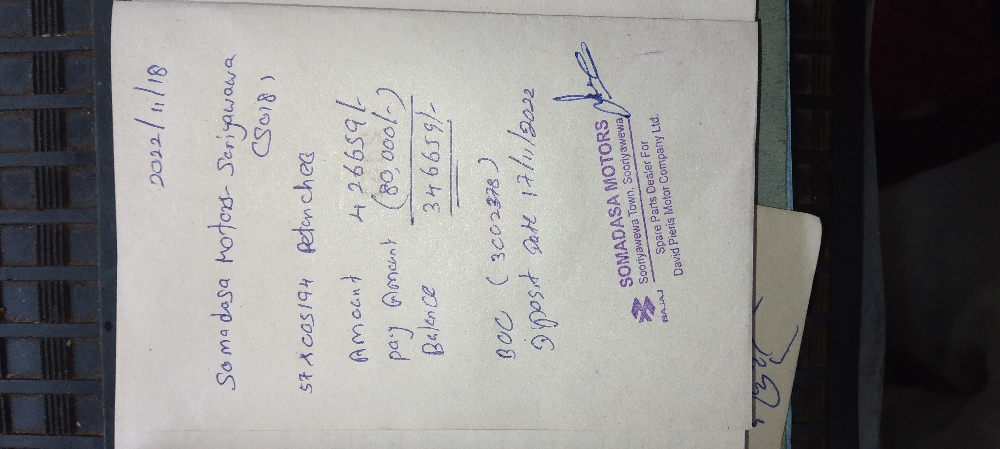 2022/11/18
Somadasa Motors - Soriyawawa
(5018)
Amount 426659/-
pay Amount (80,000/-)
Balance 346659/-
BOC (3002378)
Date 17/11/2022
SOMADASA MOTORS
Sooriyawewa Town, Sooriyawewa
Spare Parts Dealer For
David Pieris Motor Company Ltd.
BAJAJ